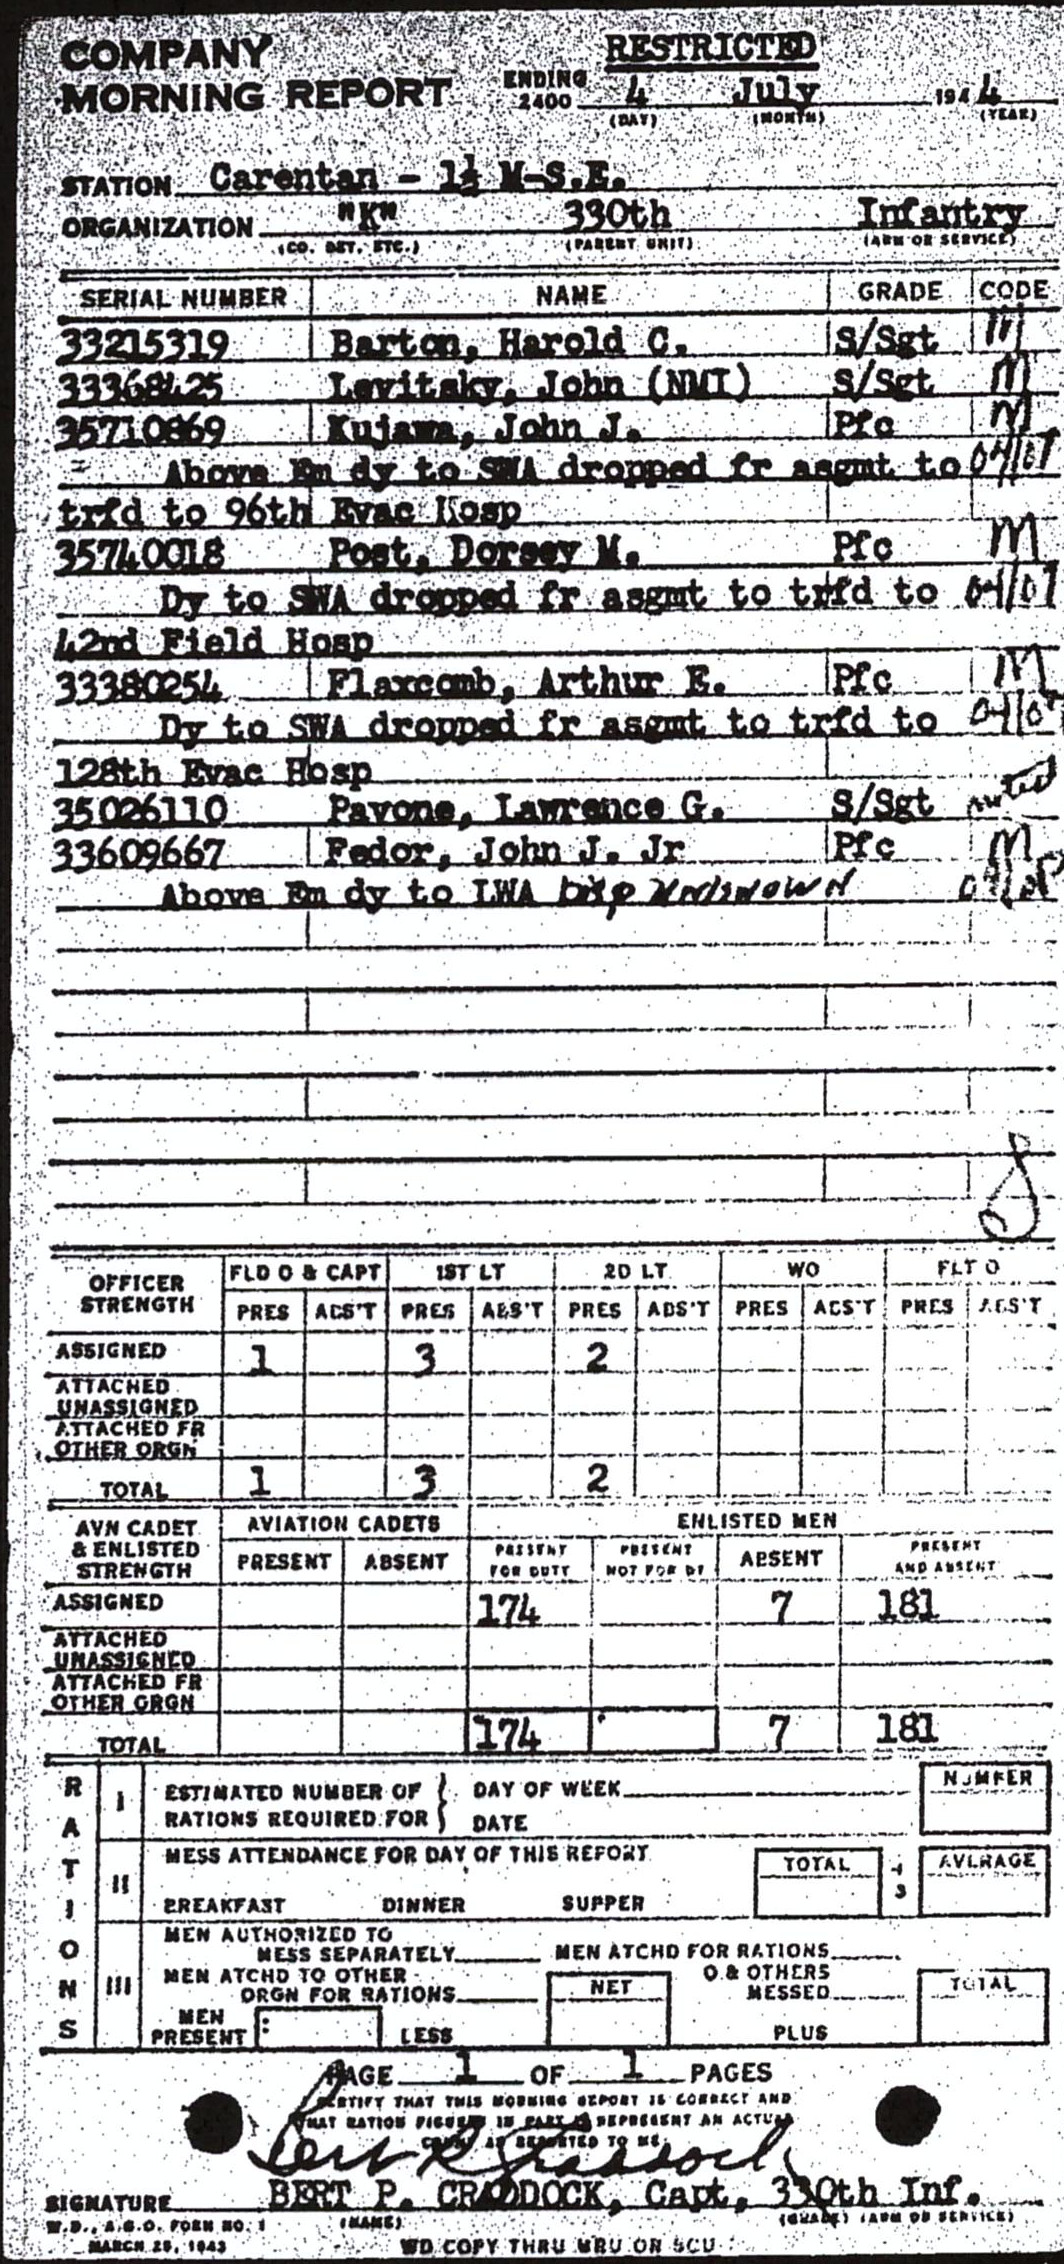 COMPANY
MORNING REPORT
RESTRICTED
ENDING 2400 4 July 1944
(DAY) (MONTH) (YEAR)
STATION Carentan - 1½ M-S.E.
ORGANIZATION "K" 330th Infantry
(CO. DET. ETC.) (PARENT UNIT) (ARM OR SERVICE)
SERIAL NUMBER NAME GRADE CODE
33215319 Barton, Harold C. S/Sgt M
33368425 Levitsky, John (NMI) S/Sgt M
35710869 Kujawa, John J. Pfc M
Above Em dy to SWA dropped fr asgmt to 04/07
trfd to 96th Evac Hosp
35740018 Post, Dorsey M. Pfc M
Dy to SWA dropped fr asgmt to trfd to 04/07
42nd Field Hosp
33380254 Flaxcomb, Arthur E. Pfc M
Dy to SWA dropped fr asgmt to trfd to
128th Evac Hosp
35026110 Pavone, Lawrence G. S/Sgt noted
33609667 Fedor, John J. Jr Pfc M
Above Em dy to LWA hosp unknown
S
OFFICER STRENGTH FLD O & CAPT 1ST LT 2D LT WO FLT O
PRES ABS'T PRES ABS'T PRES ABS'T PRES ABS'T PRES ABS'T
ASSIGNED 1 3 2
ATTACHED UNASSIGNED
ATTACHED FR OTHER ORGN
TOTAL 1 3 2
AVN CADET & ENLISTED STRENGTH AVIATION CADETS ENLISTED MEN
PRESENT ABSENT PRESENT FOR DUTY PRESENT NOT FOR DY ABSENT PRESENT AND ABSENT
ASSIGNED 174 7 181
ATTACHED UNASSIGNED
ATTACHED FR OTHER ORGN
TOTAL 174 7 181
RATIONS
I ESTIMATED NUMBER OF RATIONS REQUIRED FOR DAY OF WEEK NUMBER
DATE
II MESS ATTENDANCE FOR DAY OF THIS REPORT TOTAL ÷ 3 AVERAGE
BREAKFAST DINNER SUPPER
III MEN AUTHORIZED TO MESS SEPARATELY MEN ATCHD FOR RATIONS
MEN ATCHD TO OTHER ORGN FOR RATIONS NET O & OTHERS MESSED TOTAL
MEN PRESENT LESS PLUS
PAGE 1 OF 1 PAGES
CERTIFY THAT THIS MORNING REPORT IS CORRECT AND
THAT RATION FIGURES IN PART REPRESENT AN ACTUAL
COUNT AS REPORTED TO ME
SIGNATURE BERT P. CRADDOCK, Capt, 330th Inf.
(NAME) (GRADE) (ARM OR SERVICE)
W.D., A.G.O. FORM NO. 1
MARCH 25, 1943
WD COPY THRU MRU OR SCU